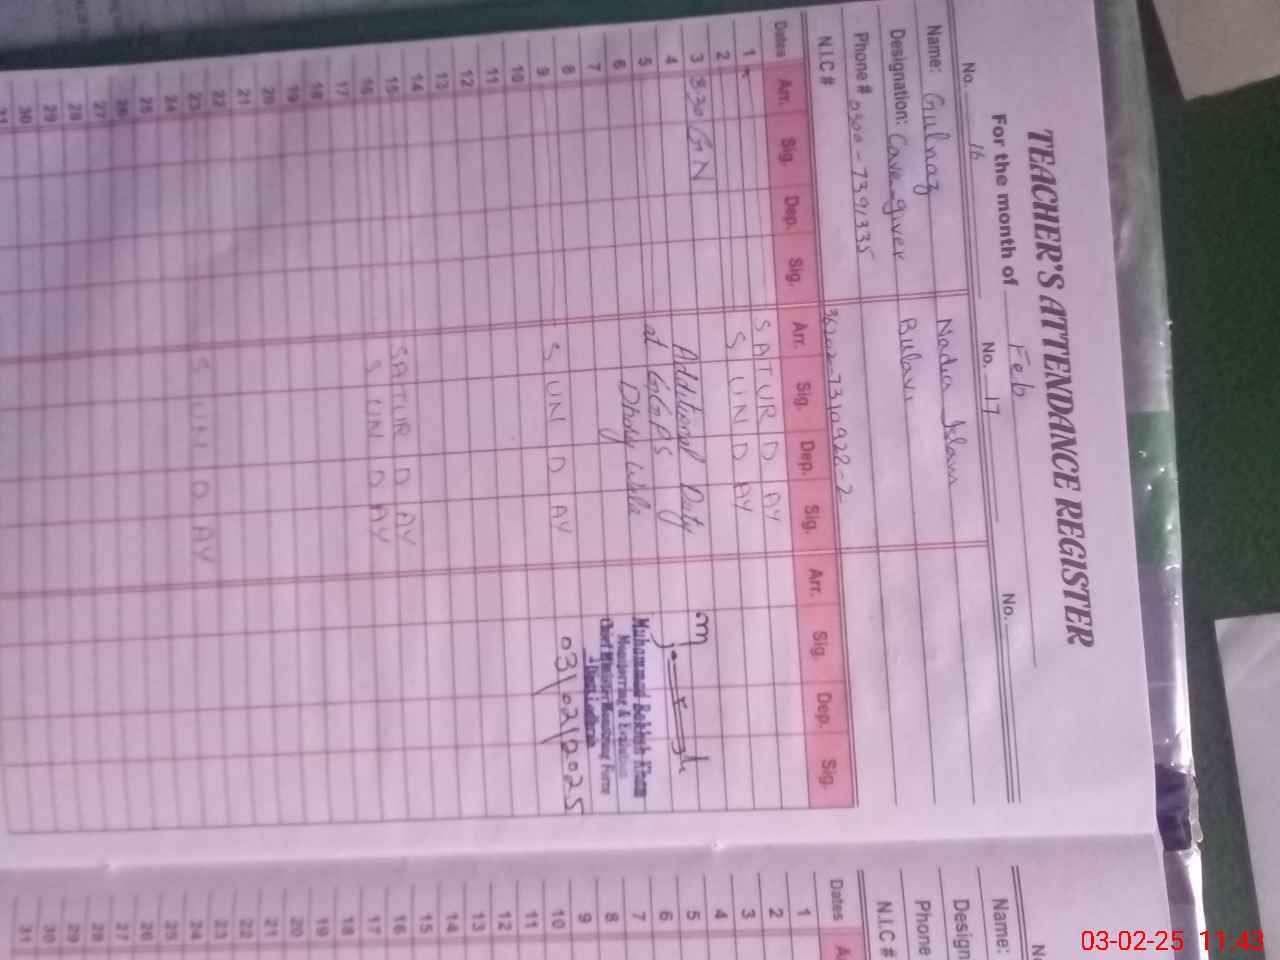 TEACHER'S ATTENDANCE REGISTER
For the month of Feb
No. 16 No. 17 No.
Name: Gulnaz Nadia Islam
Designation: Care-giver Bulavi
Phone # 0300-7391335
N.I.C # 36202-7310928-2
Dates Arr. Sig. Dep. Sig. Arr. Sig. Dep. Sig. Arr. Sig. Dep. Sig.
1 SATURDAY
2 SUNDAY
3 830 GN Additional Duty
4 at GGPS
5
6
7
8
9 SUNDAY
10
11
12
13
14
15 SATURDAY
16 SUNDAY
17
18
19
20
21
22
23 SUNDAY
24
25
26
27
28
29
30
31
Muhammad Bakhsh Khan
Monitoring & Evaluation
Chief Minister Monitoring Force
Distt Lodhran
03/02/2025
Name:
Design
Phone
N.I.C #
Dates
1
2
3
4
5
6
7
8
9
10
11
12
13
14
15
16
17
18
19
20
21
22
23
24
25
26
27
28
29
30
31
03-02-25 11:43